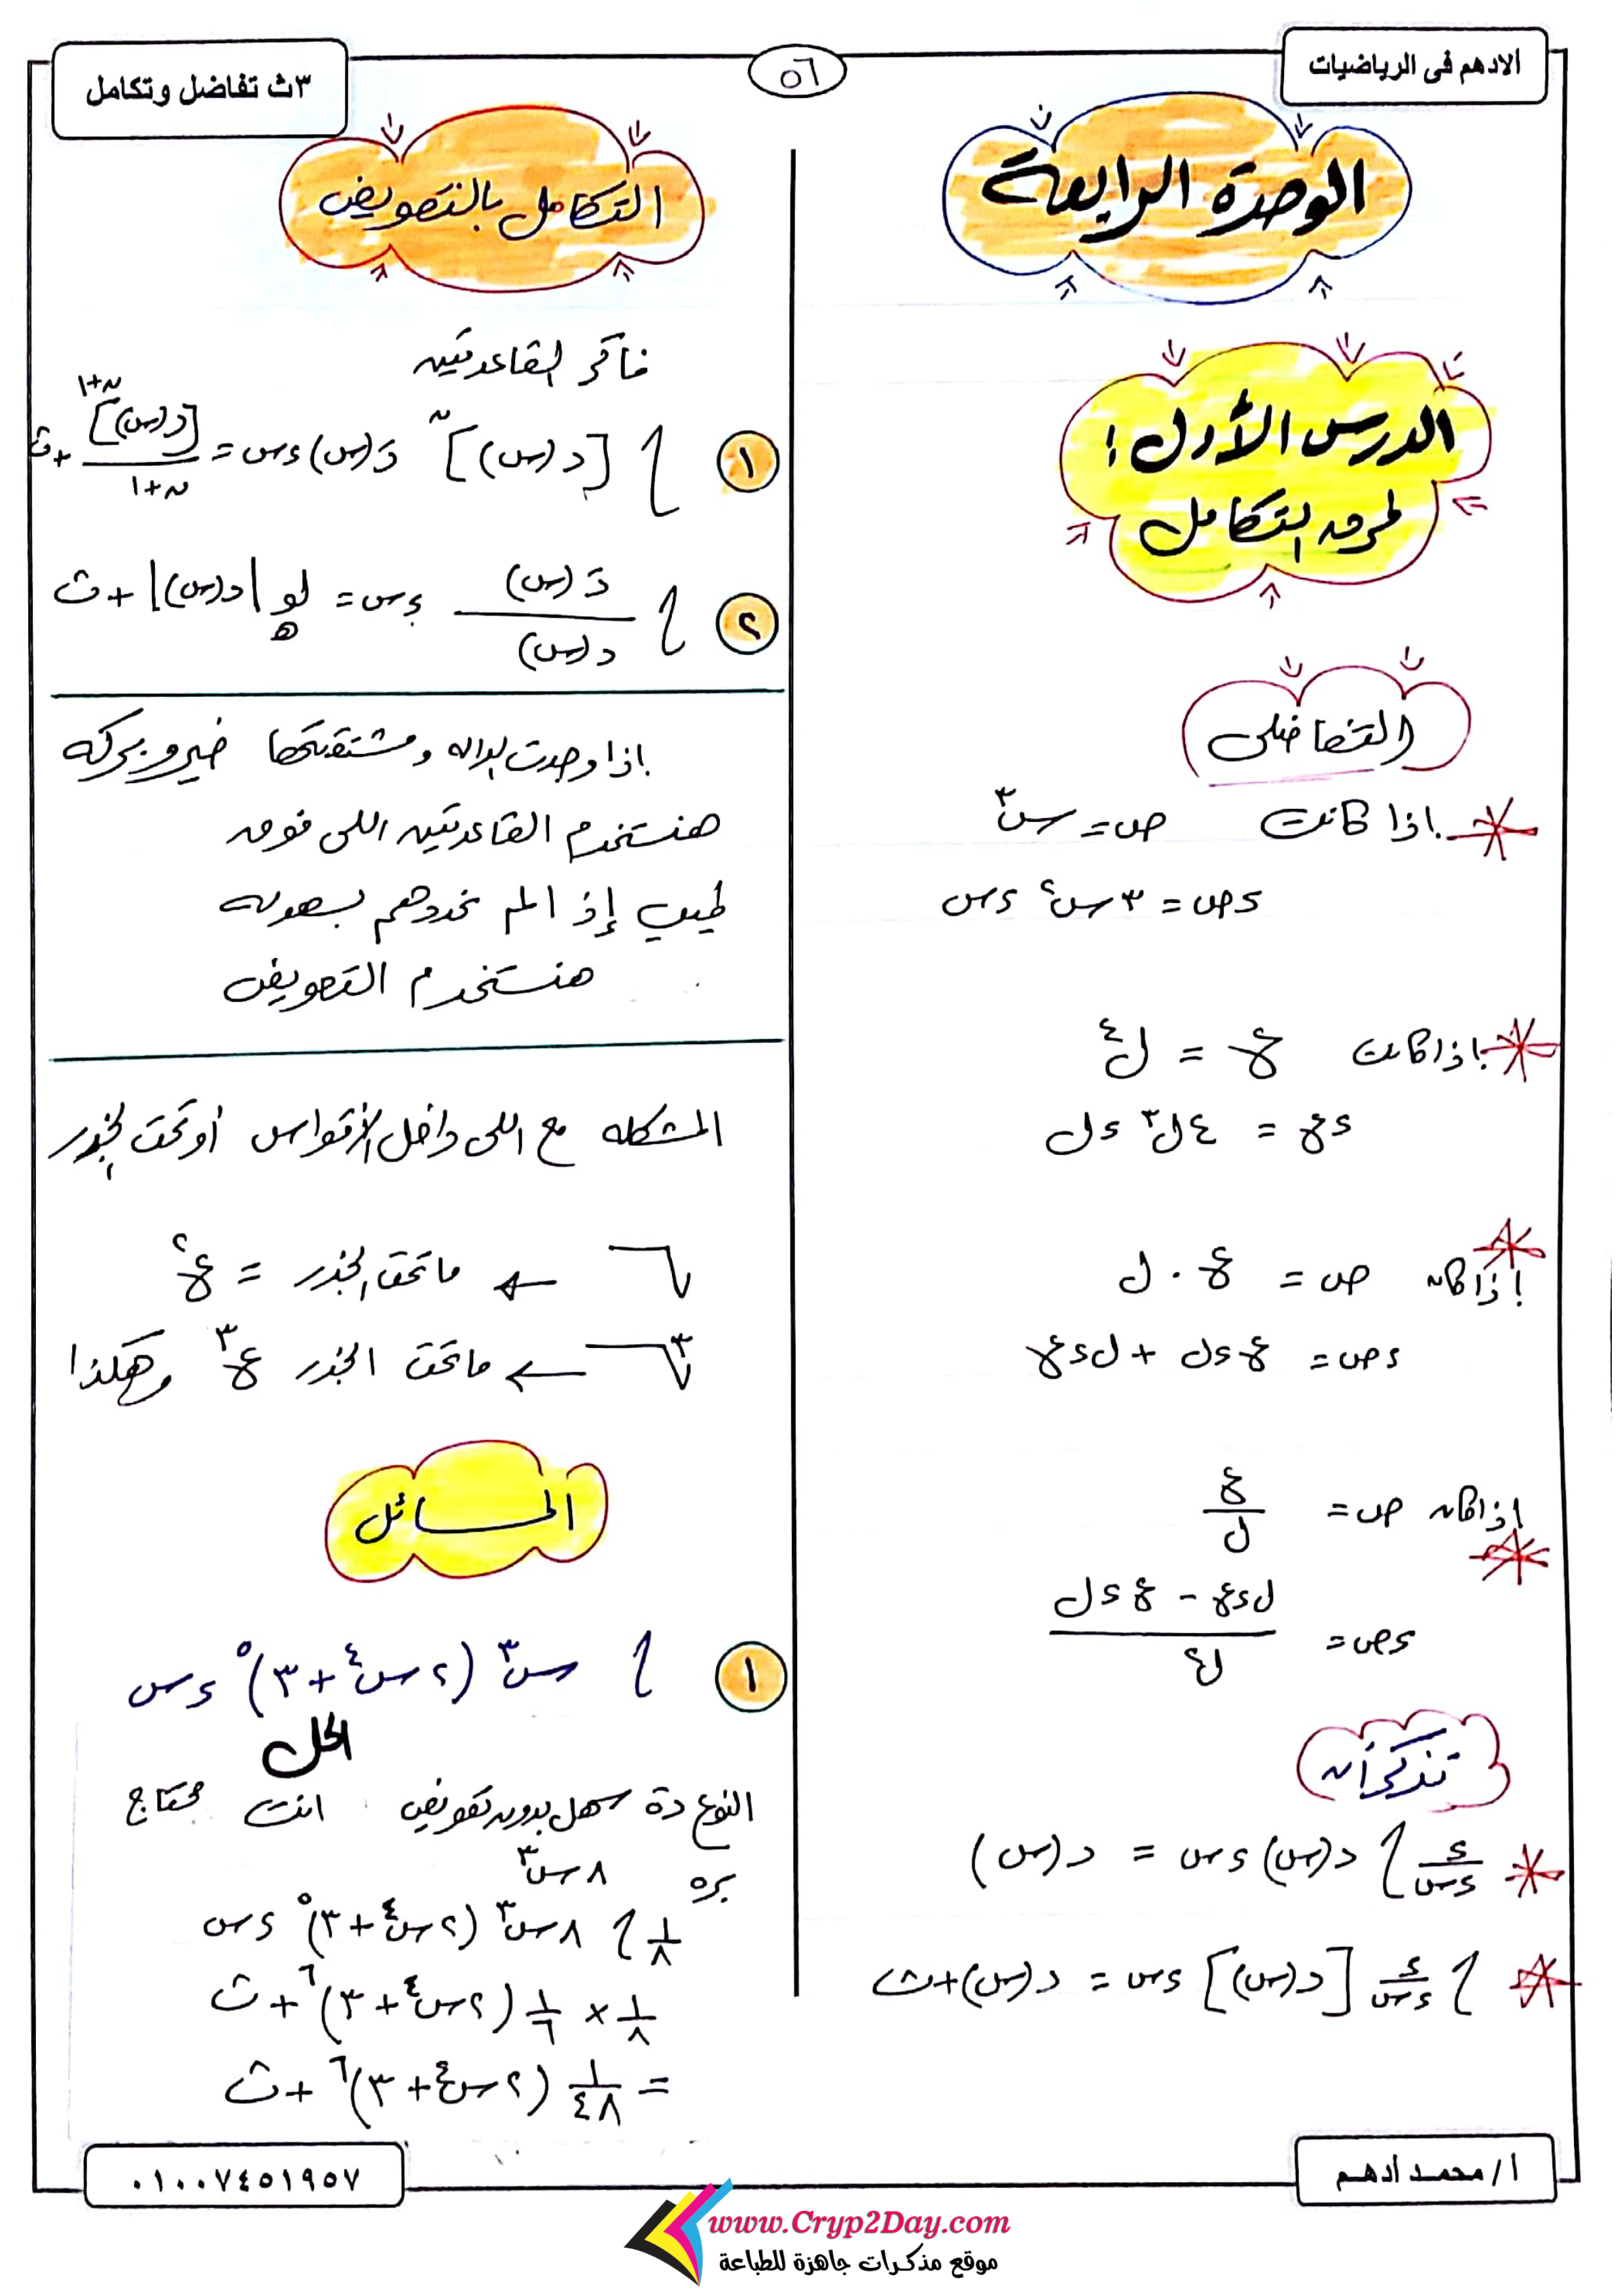 الادهم فى الرياضيات
٥٦
٣ث تفاضل وتكامل
الوحدة الرابعة
الدرس الأول :
طرق التكامل
التفاضلى
اذا كانت ص = س^٣
ءص = ٣س^٢ ءس
اذا كانت ع = ل^٤
ءع = ٤ل^٣ ءل
اذا كان ص = ع . ل
ءص = ع ءل + ل ءع
اذا كان ص = ع/ل
ءص = (ل ءع - ع ءل)/ل^٢
تذكر أن
ء/ءس ∫ د(س) ءس = د(س)
∫ ء/ءس [د(س)] ءس = د(س) + ث
التكامل بالتعويض
فاكر القاعدتين
١ ∫ [د(س)]^ن دَ(س) ءس = [د(س)]^(ن+١)/(ن+١) + ث
٢ ∫ دَ(س)/د(س) ءس = لو_ه |د(س)| + ث
اذا وجدت الداله ومشتقتها خير وبركه
هنستخدم القاعدتين اللى فوق
طيب إذا لم نجدهم بسهوله
هنستخدم التعويض
المشكله مع اللى داخل الأقواس أو تحت الجذر
√ ← ماتحت الجذر = ع^٢
∛ ← ماتحت الجذر ع^٣ وهكذا
المسائل
١ ∫ س^٣ (٢س^٤ + ٣)^٥ ءس
الحل
النوع دة سهل بدون تعويض انت محتاج
بره ٨س^٣
١/٨ ∫ ٨س^٣ (٢س^٤ + ٣)^٥ ءس
١/٨ × ١/٦ (٢س^٤ + ٣)^٦ + ث
= ١/٤٨ (٢س^٤ + ٣)^٦ + ث
أ/ محمد أدهم
٠١٠٠٧٤٥١٩٥٧
www.Cryp2Day.com
موقع مذكرات جاهزة للطباعة